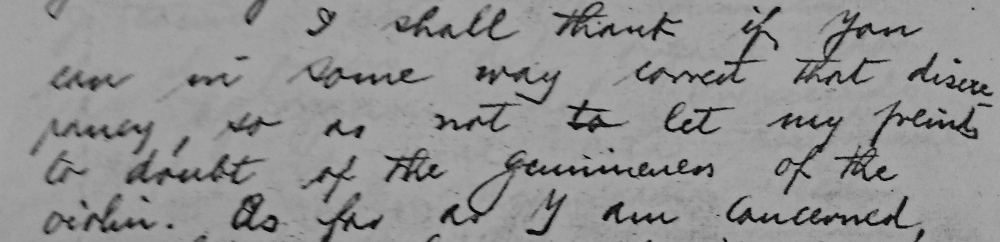 I shall thank if you
can in some way correct that discre
pancy, so as not to let my freinds
to doubt of the genuineness of the
violin. As far as I am concerned,